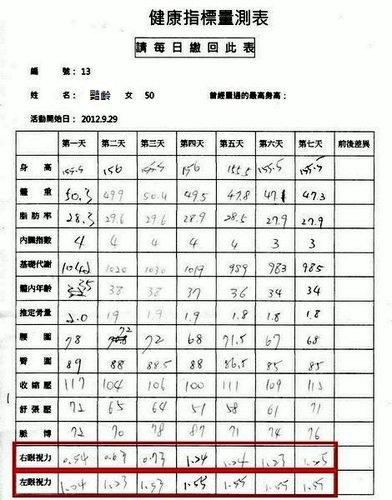 健康指標量測表
請每日繳回此表
編 號：13
姓 名： 齡 女 50 曾經量過的最高身高：
活動開始日：2012.9.29
第一天 第二天 第三天 第四天 第五天 第六天 第七天 前後差異
身高 155.5 156 155.5 156 155.5 155.5 155.5
體重 50.3 49.9 50.4 49.5 47.8 47.3
脂肪率 28.3 29.6 29.6 28.9 28.5 27.9 27.9
內臟指數 4 4 4 4 4 3 3
基礎代謝 1020 1030 1019 989 983 985
體內年齡 38 38 37 36 34 34
推定骨量 2.0 1.9 1.9 1.9 1.8 1.8 1.8
腰圍 78 72 72 68 71.5 67 68
臀圍 89 88 88.5 88 86.5 85 85
收縮壓 117 104 106 100 111 109 113
舒張壓 72 65 64 51 58 61 71
脈搏 72 70 78 87 71 74 76
右眼視力 0.54 0.63 0.73 1.24 1.24 1.23 1.25
左眼視力 1.24 1.23 1.53 1.55 1.55 1.55 1.55